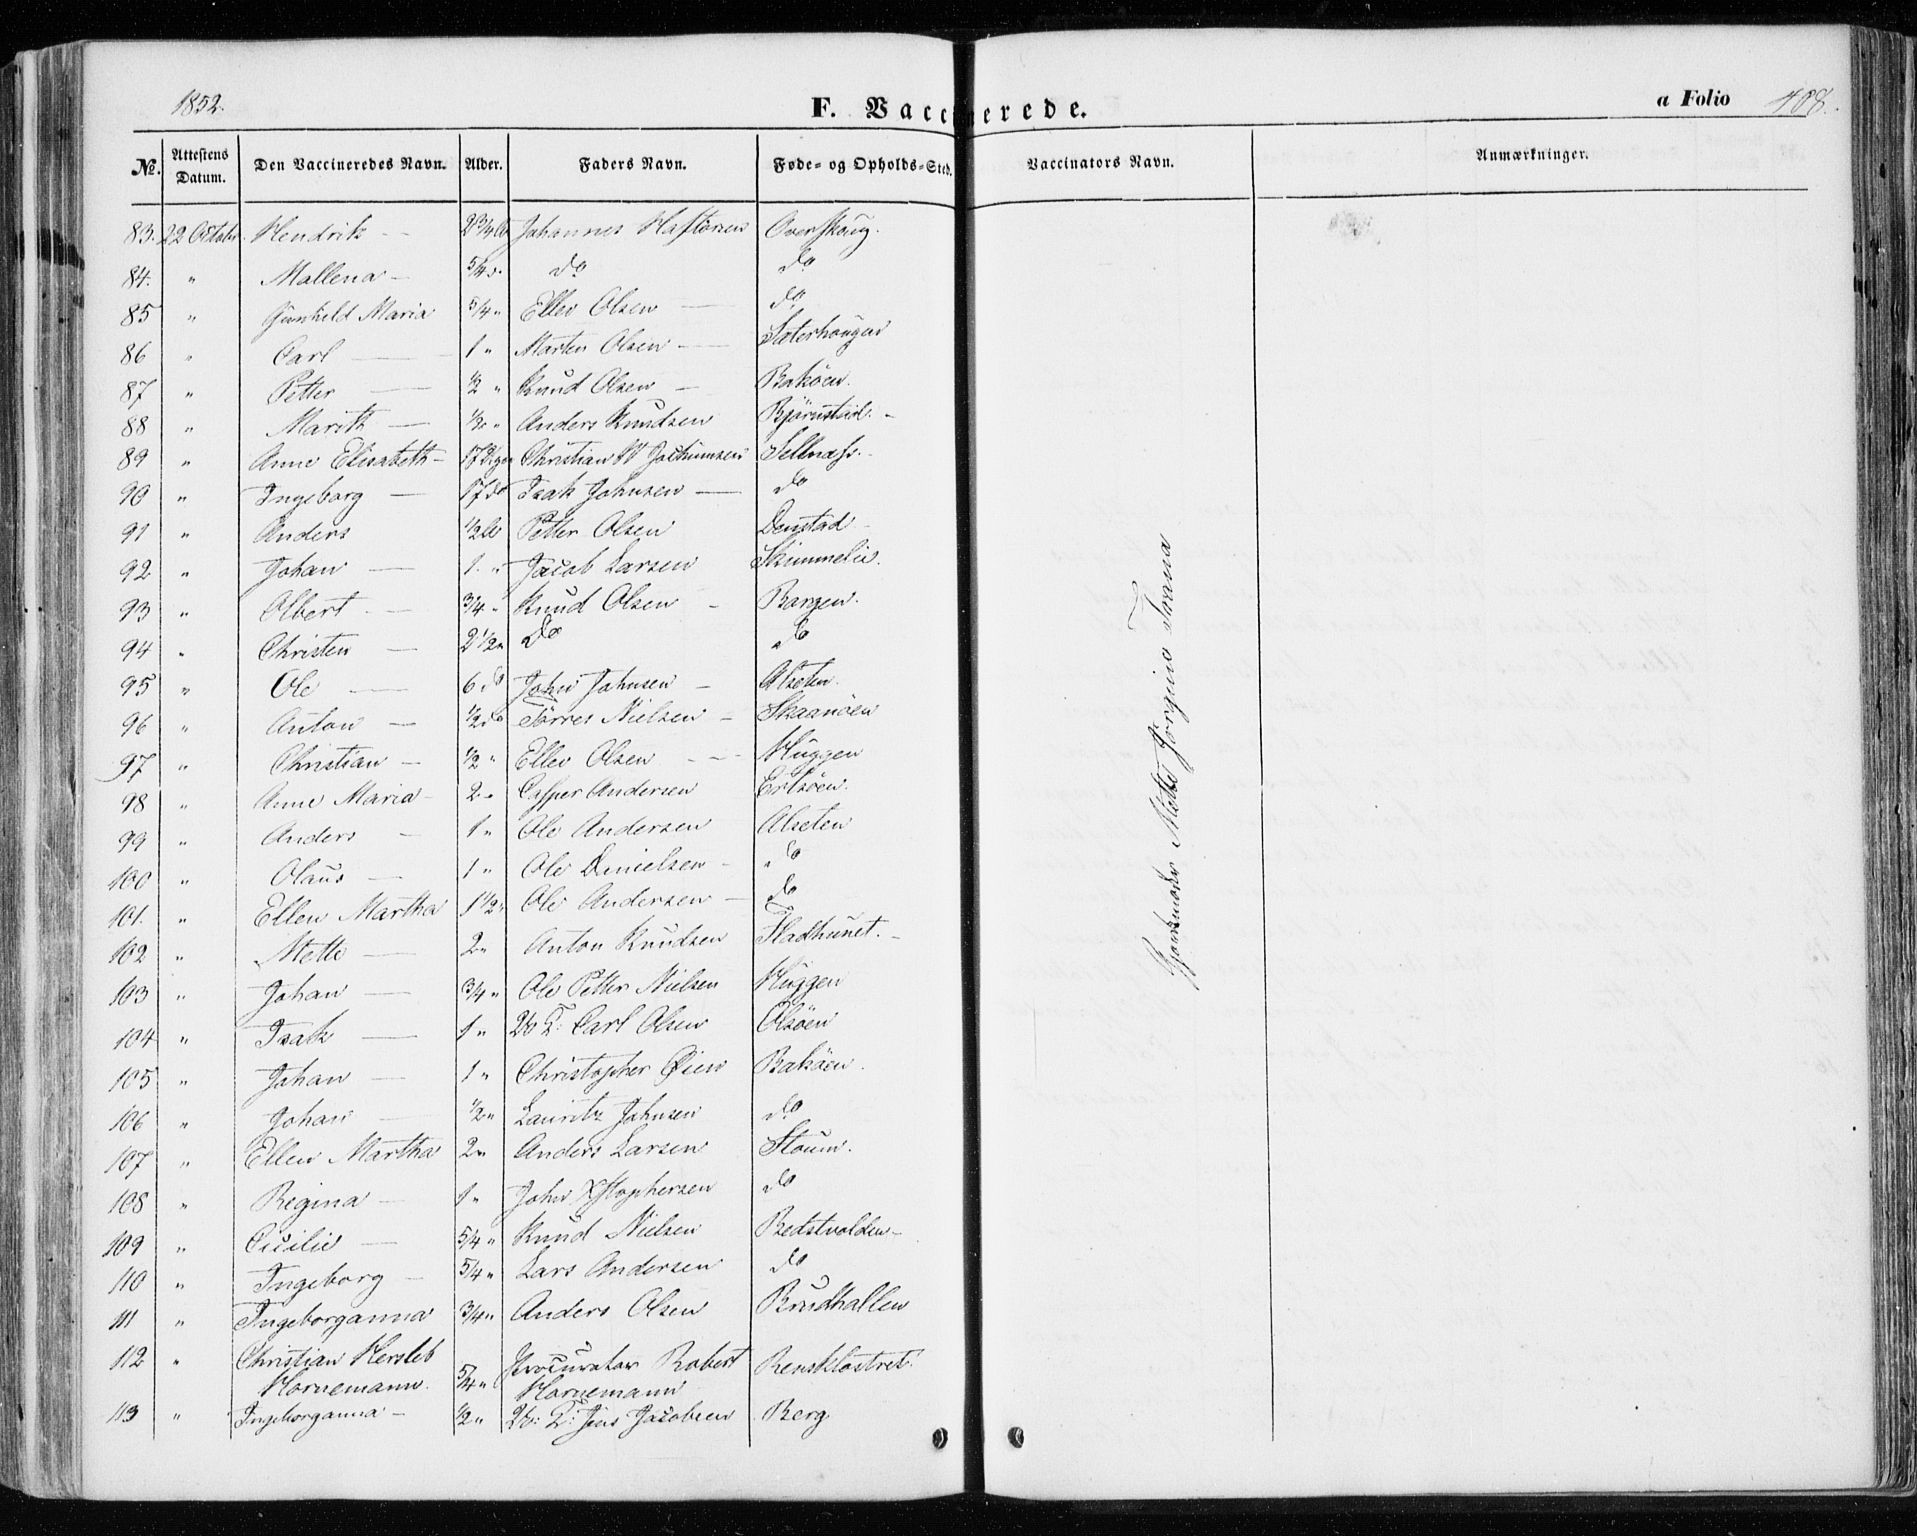 1852.
F. Vaccinerede.
a Folio 408.
No. Attestens Datum. Den Vaccineredes Navn. Alder. Faders Navn. Føde- og Opholds-Sted. Vaccinators Navn. Anmærkninger.
83. 22 Octobr. Hendrik — 2 3/4 Johannes Overskoug.
84. " Mallena — 5/4 do do
85 " Gunhild Maria 5/4 " Ellev Olsen — do
86 " Carl — 1 " Morten Olsen — Sæterhougen
87 " Petter — 1/2 " Knud Olsen — Bakøen.
88 " Marith — " Anders Knudsen Bjørnstad. -
89 " Anne Elisabeth - 17 Christian Jochumsen Sellnæss. -
90 " Ingeborg — 17 do Isak Johnsen — do
91 " Anders 1/2 Petter Olsen Donstad -
92 " Johan — 1. " Jacob Larsen Skimmelie.
93 " Olbert — 3/4 " Knud Olsen - Bargen.
94 " Christen — 2 1/2 " do do
95 " Ole — 6 do John Johnsen — Alseten.
96 " Anton — 1/2 do Tørres Nielsen — Skaanøen
97 " Christian — 1/2 " Ellev Olsen — Huggen
98 " Anne Maria - 2 " Casper Andersen Ertsøen.
99 " Anders — 1 " Ole Andersen Alseten
100 " Olaus — 1 " Ole Danielsen - " do
101. " Ellen Martha 1 1/2 " Ole Andersen — do
102 " Mette — 2 " Anton Knudsen Fladhunet. -
103 " Johan — 3/4 " Ole Petter Nielsen Huggen
104 " Isak — 1 " Carl Olsen Olsøen
105 " Johan — 1 " Christopher Øien Bakøen.
106 " Johan — 1/2 " Lauritz Johnsen do
107 " Ellen Martha 2 " Anders Larsen Stoum.
108 " Regina — 1 " John Xstophersen do
109 " Cicilie — 5/4 " Knud Nielsen Bedstvolden -
110 " Ingeborg — 5/4 " Lars Andersen do
111 " Ingeborganna 3/4 " Anders Olsen Brudhallen
112 " Christian Hersleb Hornemann. 5/4 " Procurator Robert Hornemann Rensklostret.
113 " Ingeborganna — 1/2 " Jens Jacobsen Berg
Gjordemoder Mette Jørgine Trana